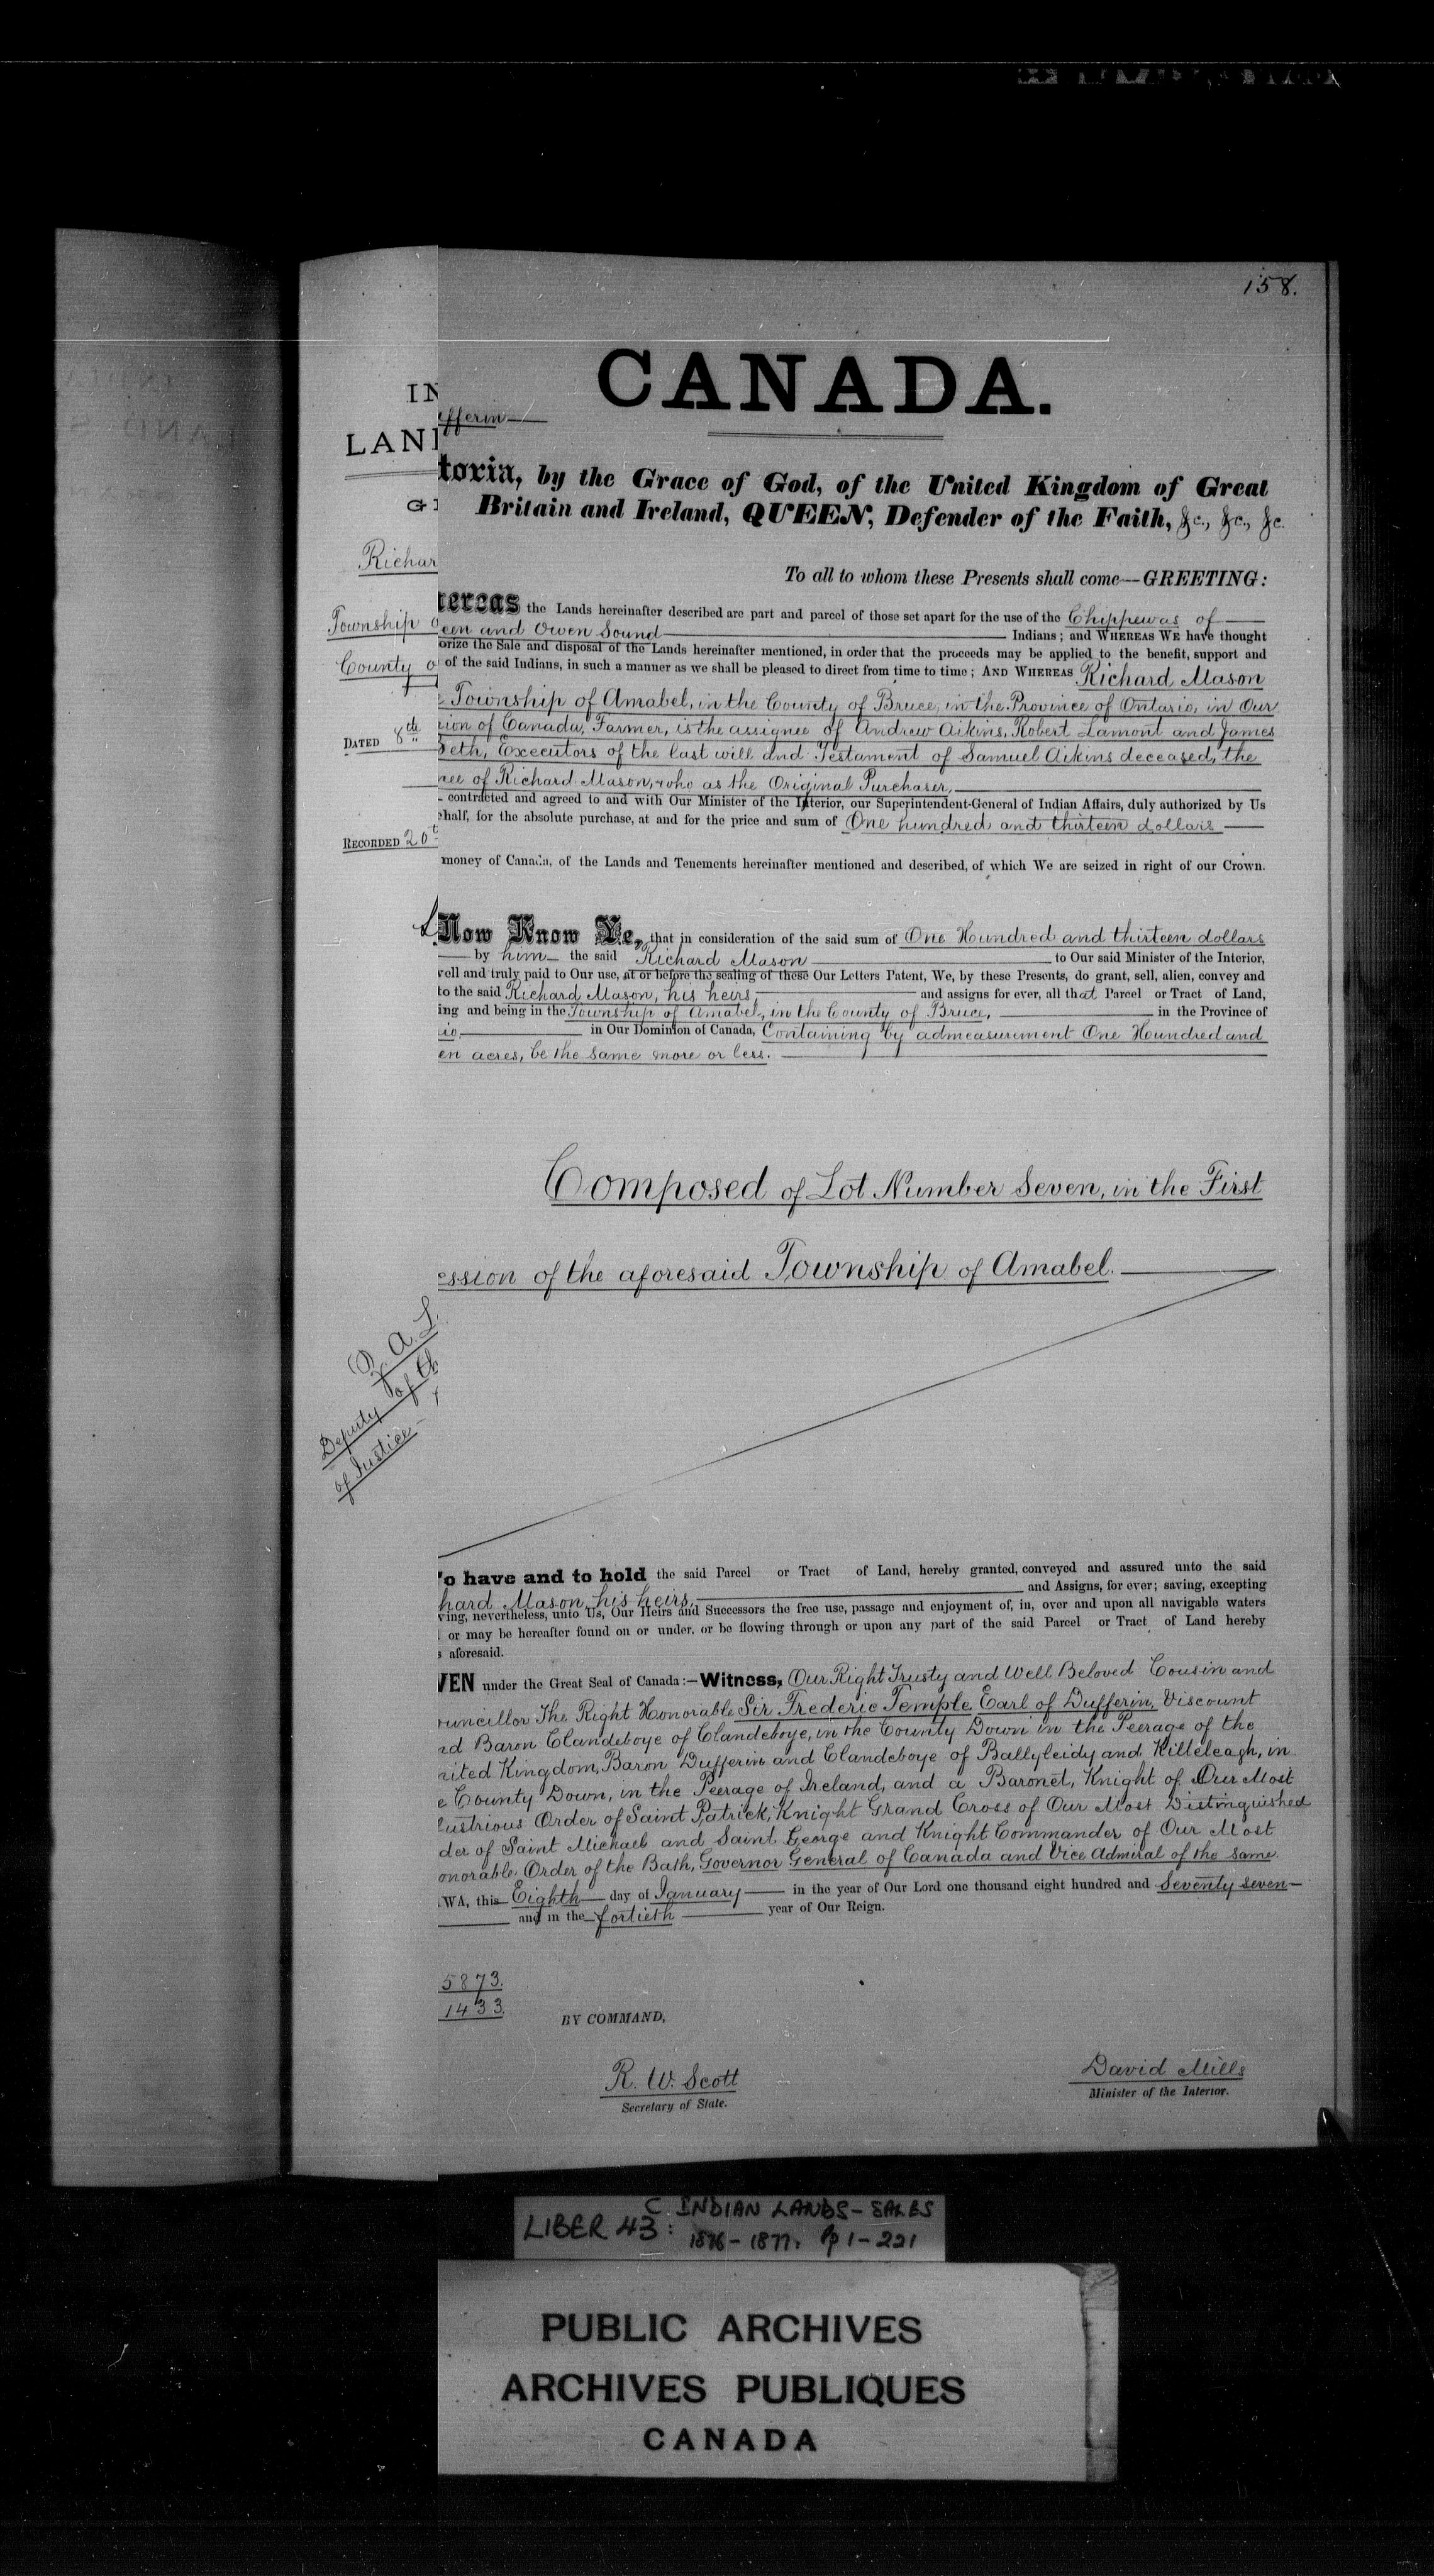 158.
CANADA.
IN
fferin
LAND
toria, by the Grace of God, of the United Kingdom of Great
Britain and Ireland, QUEEN, Defender of the Faith, &c., &c., &c.
Richar
To all to whom these Presents shall come—GREETING:
ereas the Lands hereinafter described are part and parcel of those set apart for the use of the Chippewas of
Township o
een and Owen Sound Indians; and WHEREAS WE have thought
orize the Sale and disposal of the Lands hereinafter mentioned, in order that the proceeds may be applied to the benefit, support and
County o
of the said Indians, in such a manner as we shall be pleased to direct from time to time; AND WHEREAS Richard Mason
e Township of Amabel, in the County of Bruce, in the Province of Ontario, in Our
ion of Canada, Farmer, is the assignee of Andrew Aikins, Robert Lamont and James
DATED 8th
Seth, Executors of the last will and Testament of Samuel Aikins deceased, the
nee of Richard Mason, who as the Original Purchaser,
contracted and agreed to and with Our Minister of the Interior, our Superintendent-General of Indian Affairs, duly authorized by Us
ehalf, for the absolute purchase, at and for the price and sum of One hundred and thirteen dollars
RECORDED 20t
money of Canada, of the Lands and Tenements hereinafter mentioned and described, of which We are seized in right of our Crown.
Now Know Ye, that in consideration of the said sum of One Hundred and thirteen dollars
by him the said Richard Mason to Our said Minister of the Interior,
vell and truly paid to Our use, at or before the sealing of these Our Letters Patent, We, by these Presents, do grant, sell, alien, convey and
to the said Richard Mason, his heirs, and assigns for ever, all that Parcel or Tract of Land,
ing and being in the Township of Amabel, in the County of Bruce, in the Province of
io, in Our Dominion of Canada, Containing by admeasurement One Hundred and
en acres, be the same more or less.
Composed of Lot Number Seven, in the First
ession of the aforesaid Township of Amabel.
Z. A. L
Deputy of th
of Justice
To have and to hold the said Parcel or Tract of Land, hereby granted, conveyed and assured unto the said
hard Mason, his heirs, and Assigns, for ever; saving, excepting
ving, nevertheless, unto Us, Our Heirs and Successors the free use, passage and enjoyment of, in, over and upon all navigable waters
l or may be hereafter found on or under, or be flowing through or upon any part of the said Parcel or Tract of Land hereby
s aforesaid.
VEN under the Great Seal of Canada:—Witness, Our Right Trusty and Well Beloved Cousin and
ouncillor The Right Honorable Sir Frederic Temple, Earl of Dufferin, Viscount
nd Baron Clandeboye of Clandeboye, in the County Down in the Peerage of the
nited Kingdom, Baron Dufferin and Clandeboye of Ballyleidy and Killeleagh, in
e County Down, in the Peerage of Ireland, and a Baronet, Knight of Our Most
lustrious Order of Saint Patrick, Knight Grand Cross of Our Most Distinguished
der of Saint Michael and Saint George and Knight Commander of Our Most
onorable Order of the Bath, Governor General of Canada and Vice Admiral of the same.
WA, this Eighth day of January in the year of Our Lord one thousand eight hundred and Seventy seven
and in the fortieth year of Our Reign.
5873.
1433.
BY COMMAND,
R. W. Scott
Secretary of State.
David Mills
Minister of the Interior.
LIBER 43: C. INDIAN LANDS - SALES
1876-1877. Pp 1-221
PUBLIC ARCHIVES
ARCHIVES PUBLIQUES
CANADA